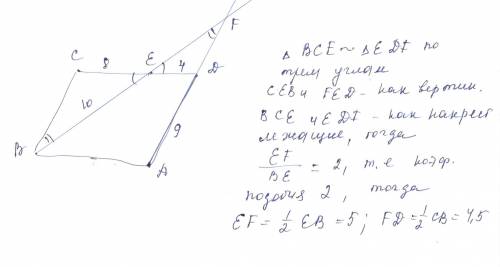 F
C 8 E 4 D
10
9
B
A
Δ BCE ~ Δ EDF по
трем углам
CEB и FED - как вертик.
BCE и EDF - как накрест
лежащие, тогда
EF/BE = 2, т.е коэф.
подобия 2, тогда
EF = 1/2 EB = 5; FD = 1/2 CB = 4,5